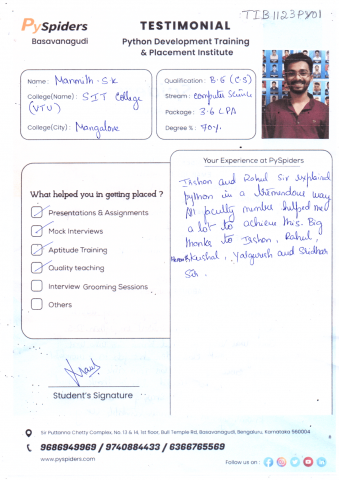 TIB1123PY01
PySpiders
Basavanagudi
TESTIMONIAL
Python Development Training
& Placement Institute
Name: Manmith.S.K
College(Name): SIT College
(VTU)
College(City): Mangalore
Qualification: B.E (C.S)
Stream: Computer Science
Package: 3.6 LPA
Degree %: 70%.
What helped you in getting placed ?
Presentations & Assignments
Mock Interviews
Aptitude Training
Quality teaching
Interview Grooming Sessions
Others
Your Experience at PySpiders
Ikshon and Rahul Sir explained
python in a tremendous way
All faculty member helped me
a lot to achieve this. Big
thanks to Ikshon, Rahul,
Kaushal, Yalguresh and Sridhar
Sir.
Student's Signature
Sir Puttanna Chetty Complex, No. 13 & 14, 1st floor, Bull Temple Rd, Basavanagudi, Bengaluru, Karnataka 560004
9686949969 / 9740884433 / 6366765569
www.pyspiders.com
Follow us on :